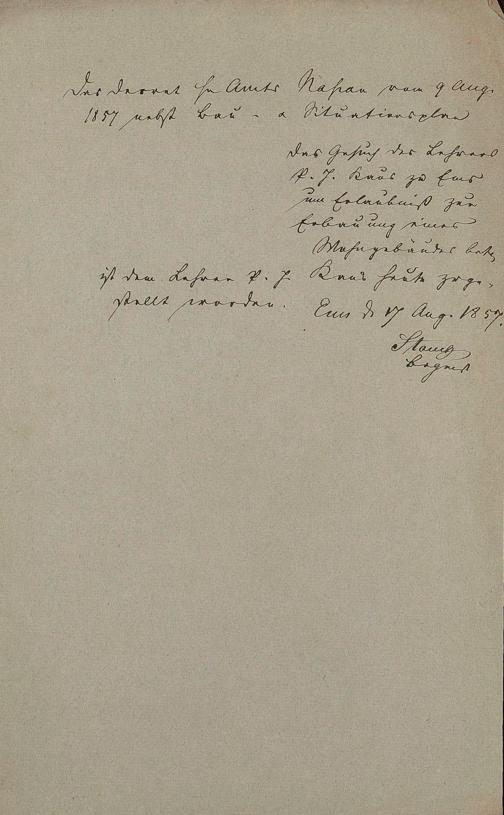 Das Decret Hz. Amts Nassau vom 9 Aug.
1857 nebst Bau- u Situationsplan
das Gesuch des Lehrers
P. J. Kaus zu Ems
um Erlaubniß zur
Erbauung eines
Wohngebäudes betr.
ist dem Lehrer P. J. Kaus heute zuge-
stellt worden. Ems d 17 Aug. 1857.